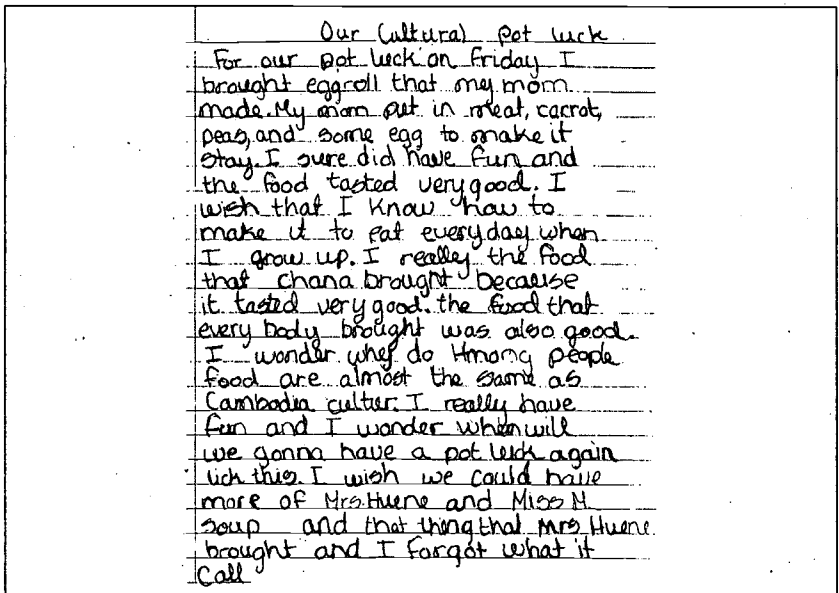 Our Cultural Pot luck
For our pot luck on friday I
brought eggroll that my mom
made. My mom put in meat, carrot,
peas, and some egg to make it
stay. I sure did have fun and
the food tasted very good. I
wish that I know how to
make it to eat everyday when
I grow up. I really the food
that chana brought because
it tasted very good. the food that
every body brought was also good.
I wonder why do Hmong people
food are almost the same as
Cambodia culter. I really have
fun and I wonder when will
we gonna have a pot luck again
lick this. I wish we could have
more of Mrs. Huene and Miss M.
soup and that thing that Mrs Huene
brought and I forgot what it
Call